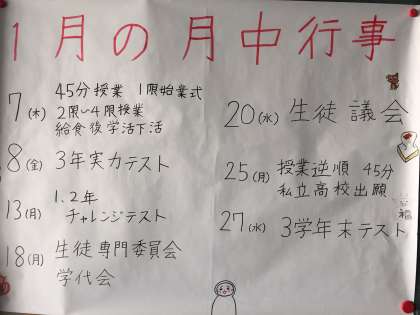 1月の月中行事
7(木) 45分授業 1限始業式
2限～4限授業
給食後学活下活
8(金) 3年実力テスト
13(月) 1.2年
チャレンジテスト
18(月) 生徒専門委員会
学代会
20(水) 生徒議会
25(月) 授業逆順 45分
私立高校出願
27(水) 3学年末テスト